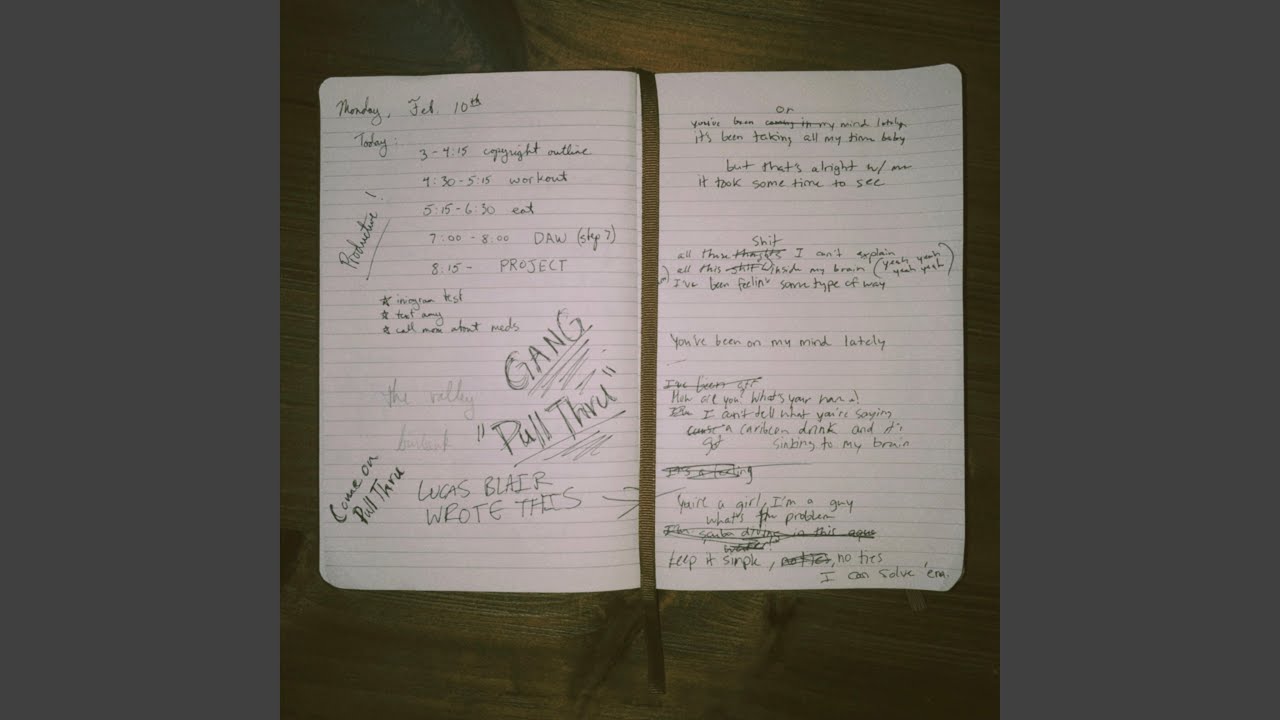 Monday, Feb. 10th
Today:
3 - 4:15 copyright outline
4:30 - 5:15 workout
5:15 - 6:30 eat
7:00 - 8:00 DAW (step 7)
8:15 - PROJECT
Productive!
☆ text amy
☆ call mom about meds
GANG
"Pull Thru"
the valley
burbank
Come on
Pull Thru
LUCAS BLAIR
WROTE THIS
or
you've been in my mind lately
its been taking all my time baby
but that's alright w/ me
it took some time to see
shit
all these thoughts I can't explain
all this shit inside my brain (yeah yeah
yeah yeah)
I've been feelin' some type of way
You've been on my mind lately
I've been
How are you? What's your name?
I'm I can't tell what you're saying
cause a caribean drink and it's
got sinking to my brain
It's a feeling
You're a girl, I'm a guy
what's the problem
I'm scuba diving in this aqua
water
keep it simple, no ties
I can solve 'em.